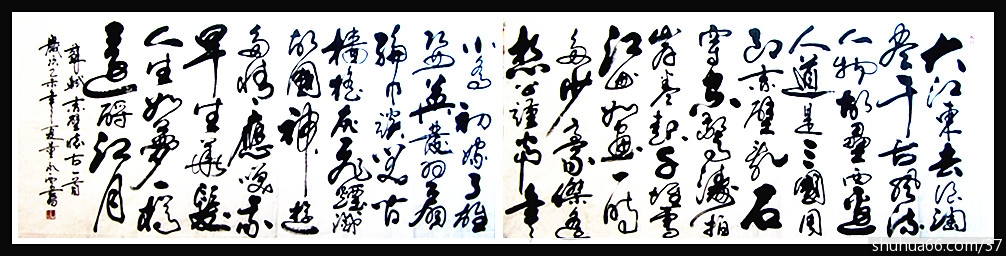 大江東去浪淘
盡千古風流
人物故壘西邊
人道是三國周
郎赤壁亂石
穿空驚濤拍
岸卷起千堆雪
江山如畫一時
多少豪傑遙
想公謹當年
小喬初嫁了雄
姿英發羽扇
綸巾談笑間
檣櫓灰飛煙滅
故國神遊
多情應笑我
早生華髮
人生如夢一樽
還酹江月
蘇軾赤壁懷古一首
歲次乙未年夏書
shuhua66.com/37